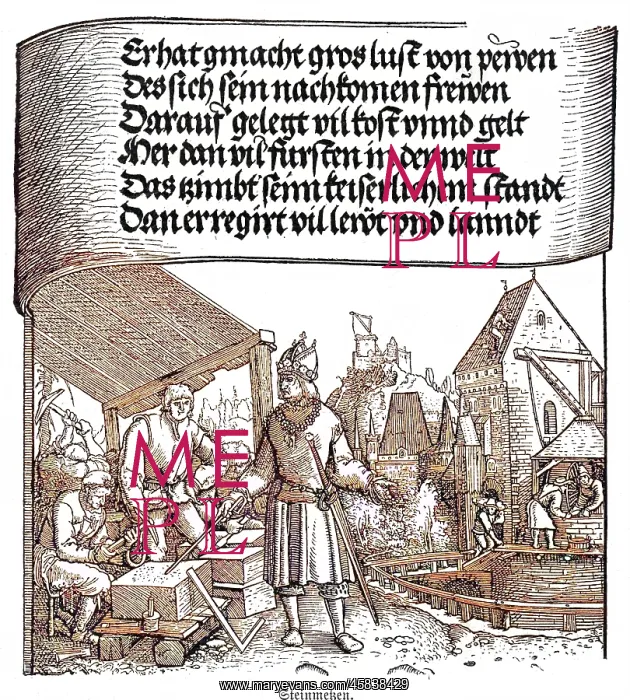 Er hat gmacht gros lust von pewen
Des sich sein nachkomen frewen
Darauf gelegt vil kost vnnd gelt
Mer dan vil fursten in der welt
Das tzimbt seinn keiserlichm standt
Dan er regirt vil lewt vnd lanndt
ME
PL
ME
PL
www.maryevans.com/45838429
Steinmetzen.